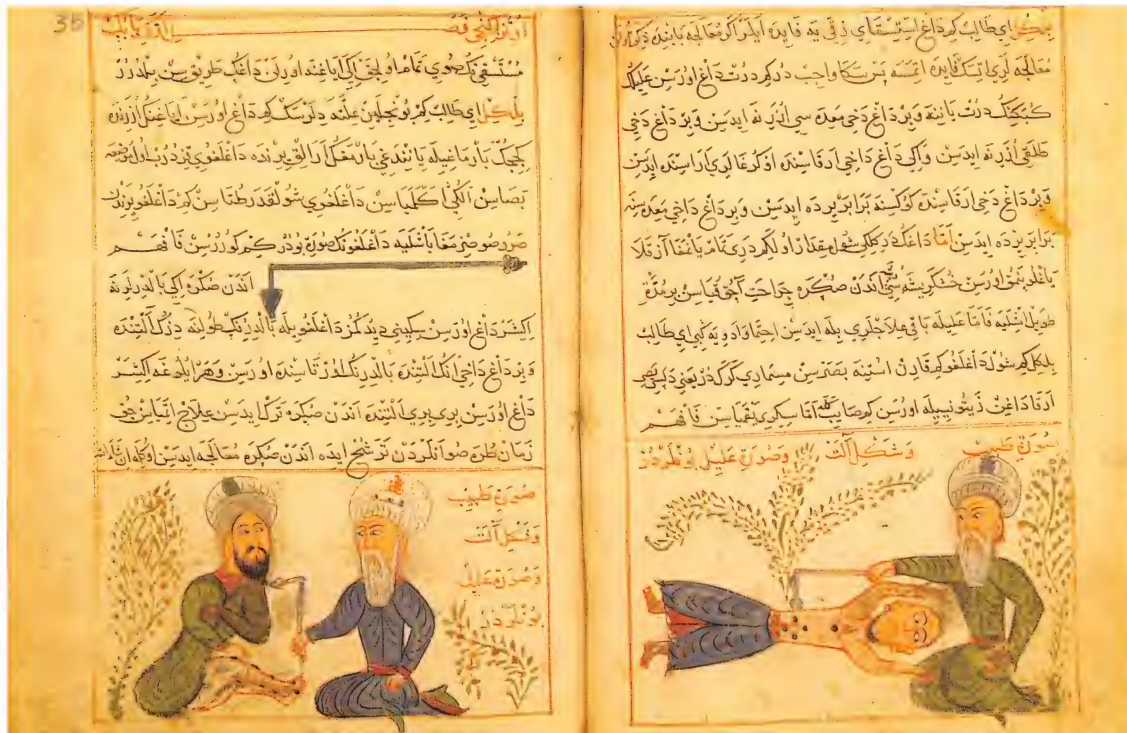 بلكل اى طالب كم داغ استسقاى زقى يه فايده ايلر اكر معالجه بابنده
معالجه لرى اتسك فايده اتمسه پس سكا واجب دركم درت داغ اورسن عليلك
درت يانينه وبر داغ دخى معده سى اذرنه ايدسن وبر داغ دخى
طلقى اذرنه ايدسن واكى داغ داخى ارقاسنده اوكرغالرى اراسنده ايدسن
وبر داغ دخى ارقاسنده كوكسنه برابر يرده ايدسن وبر داغ داخى معده سنه
برابر يرده ايدسن اما داغك شول مقدار اولكم درى تمام يانقا آز قلا
اورسن اندن صكره جراحت آچق قياسن بر مدت
طويل اشليه فاما عليله باقى علاجلرى بيله ايدسن ادويه كبى اى طالب
بلكل كم شول داغلغوكم قارن استنه بصرسن مسمارى كركدر يعنى
ارقا داغن زيتونييله اورسن كم صاپ اقا سكرى يقمياسن فافهم
صورة طبيب وشكل آلت وصورة عليل بونلردر
35
مستسقى نك صوى تمام اولجق اكى ياغنه اوريلن داغك طريق سن بلدرر
بلكل اى طالب كم بو نجلين علته دلرسك كم داغ اورسن اياغنك اذرينه
بارماغيله يانندغى بارمغك ارالق يرنده داغلغويى
بصاسن اكلمياسن داغلغويى شول قدر طتاسن كم داغلغو يرندن
صرو صو صزمغا باشليه داغلغونك صورة بودر كم كورسن فافهم
اندن صكره اكى بالدرلرنه
اكيشر داغ اورسن سكينى ديدكمز داغلغويله بالدرنك طولينه دزك آلتنده
وبر داغ داخى انك آلتنده بالدرنك اورتاسنده اورسن وهر بلدغه اكيشر
داغ اورسن برى برى آلتنده اندن صكره ترك ايدسن علاج اتمياسن چق
زمان طره صو انلردن ترشح ايده اندن صكره معالجه ايدسن
صورة طبيب
وشكل آلت
وصورة عليل
بونلردر